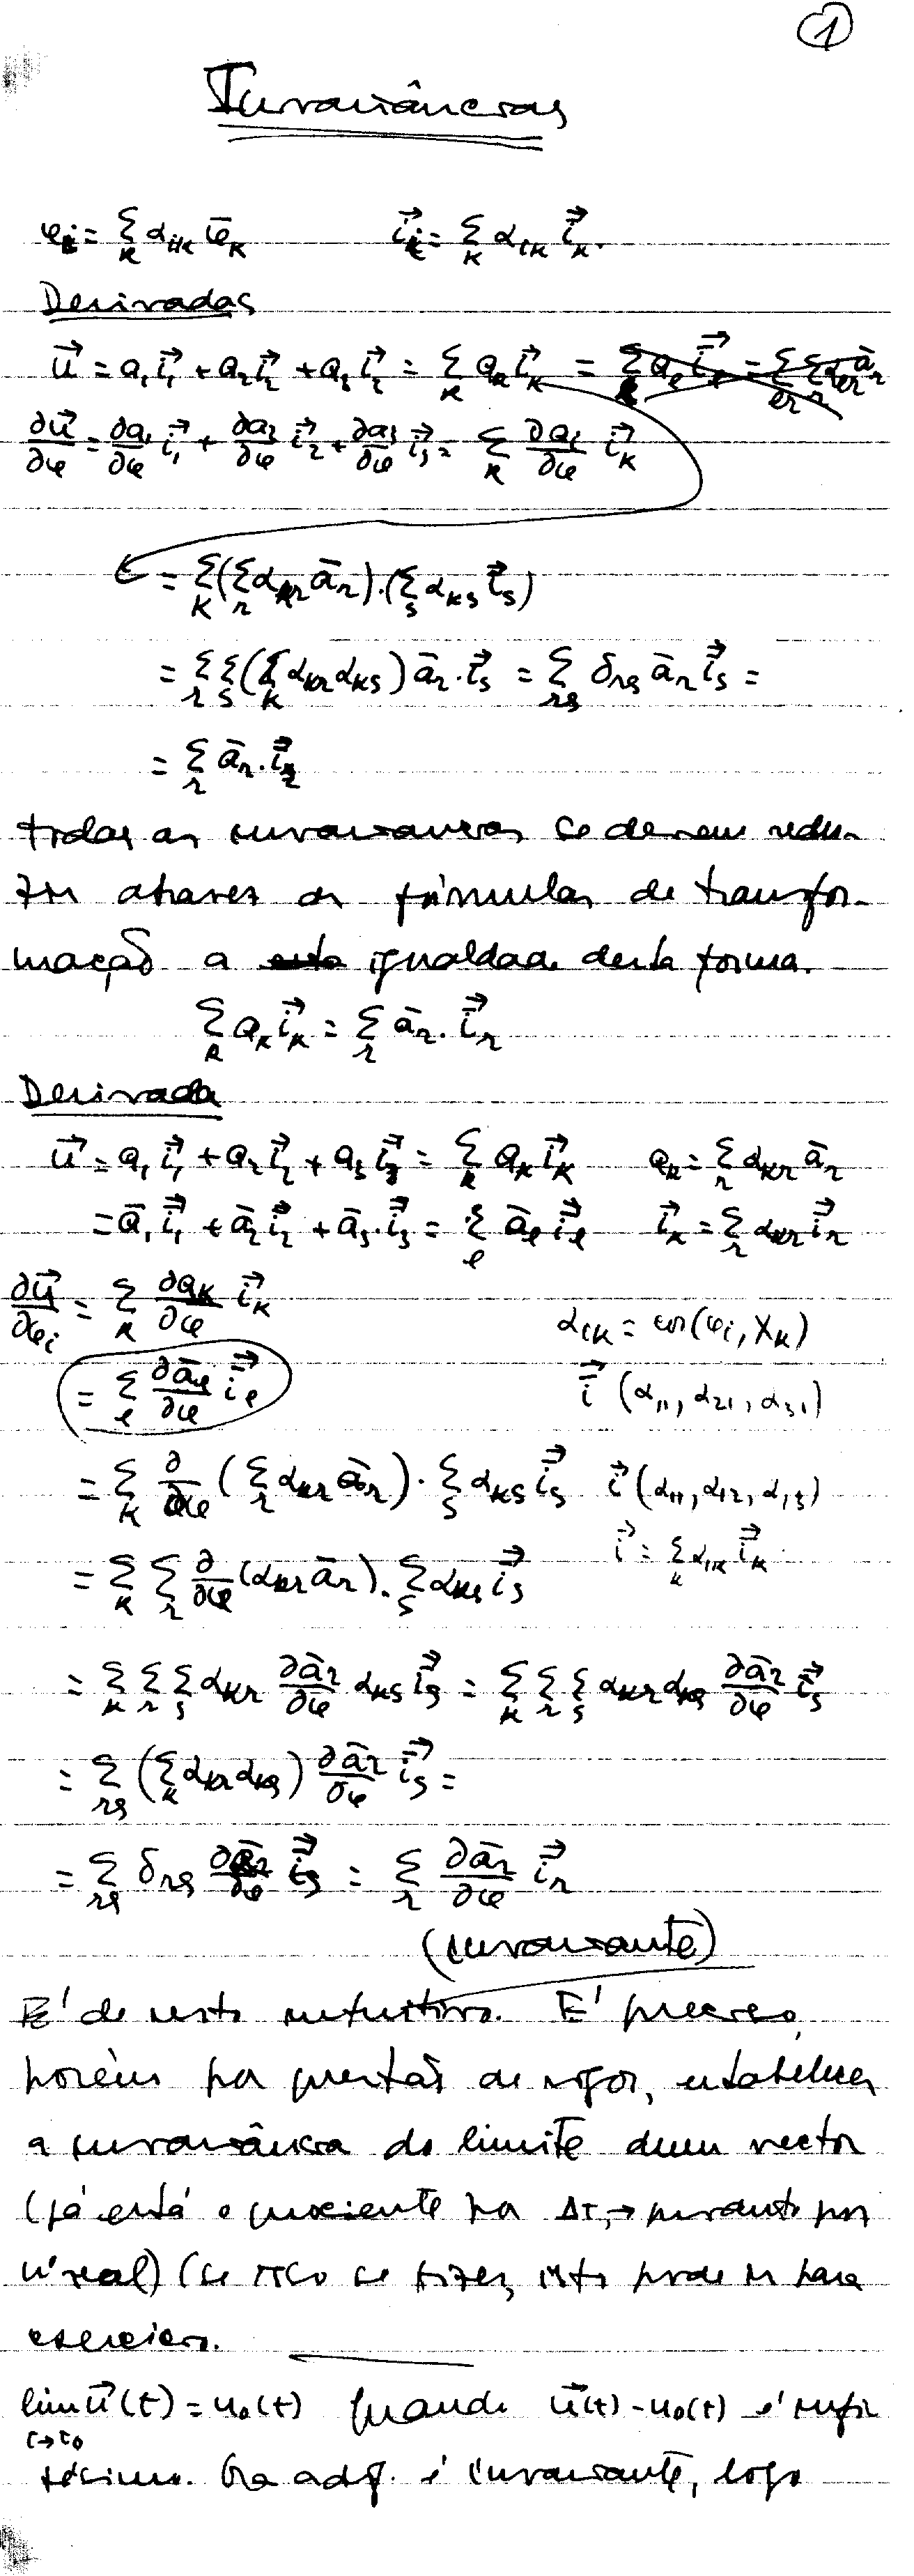 1
Invariâncias
φ_i = Σ_k α_ik φ̄_k    i⃗_i = Σ_k α_ik i̅⃗_k.
Derivadas
u⃗ = a₁i⃗₁ + a₂i⃗₂ + a₃i⃗₂ = Σ_k a_k i⃗_k =
∂u⃗/∂φ = ∂a₁/∂φ i⃗₁ + ∂a₂/∂φ i⃗₂ + ∂a₃/∂φ i⃗₃ = Σ_k ∂a_k/∂φ i⃗_k
= Σ_k (Σ_r α_kr ā_r) . (Σ_s α_ks i̅⃗_s)
= Σ_r Σ_s (Σ_k α_kr α_ks) ā_r . i̅⃗_s = Σ_rs δ_rs ā_r i̅⃗_s =
= Σ_r ā_r . i̅⃗_r
todas as invariancias se devem redu-
zir através as fórmulas de transfor-
mação a igualdade desta forma.
Σ_k a_k i⃗_k = Σ_r ā_r . i̅⃗_r
Derivada
u⃗ = a₁i⃗₁ + a₂i⃗₂ + a₃i⃗₃ = Σ_k a_k i⃗_k    a_k = Σ_r α_kr ā_r
= ā₁i̅⃗₁ + ā₂i̅⃗₂ + ā₃.i̅⃗₃ = Σ_ℓ ā_ℓ i̅⃗_ℓ    i⃗_k = Σ_r α_kr i̅⃗_r
∂u⃗/∂φ_i = Σ_k ∂a_k/∂φ i⃗_k    α_ik = cos(φ_i, x_k)
= Σ_ℓ ∂ā_ℓ/∂φ i̅⃗_ℓ    i̅⃗ (α₁₁, α₂₁, α₃₁)
= Σ_k ∂/∂φ (Σ_r α_kr ā_r) . Σ_s α_ks i̅⃗_s    i⃗ (α₁₁, α₁₂, α₁₃)
= Σ_k Σ_r ∂/∂φ (α_kr ā_r) . Σ_s α_ks i̅⃗_s    i⃗ = Σ_k α_1k i̅⃗_k
= Σ_k Σ_r Σ_s α_kr ∂ā_r/∂φ α_ks i̅⃗_s = Σ_k Σ_r Σ_s α_kr α_ks ∂ā_r/∂φ i̅⃗_s
= Σ_rs (Σ_k α_kr α_ks) ∂ā_r/∂φ i̅⃗_s =
= Σ_rs δ_rs ∂ā_r/∂φ i̅⃗_s = Σ_r ∂ā_r/∂φ i̅⃗_r
(invariante)
E' de resto intuitivo. E' preciso,
porém por questão de rigor, estabelecer
a invariância do limite dum vector
(já está o quociente por Δt, → produto por
nº real) (se isso se fizer, isto pode ir para
exercicio.
lim u⃗(t) = u₀(t) quando u⃗(t) - u₀(t) é infi
t→t₀
tésimo. Ora a dif. é invariante, logo